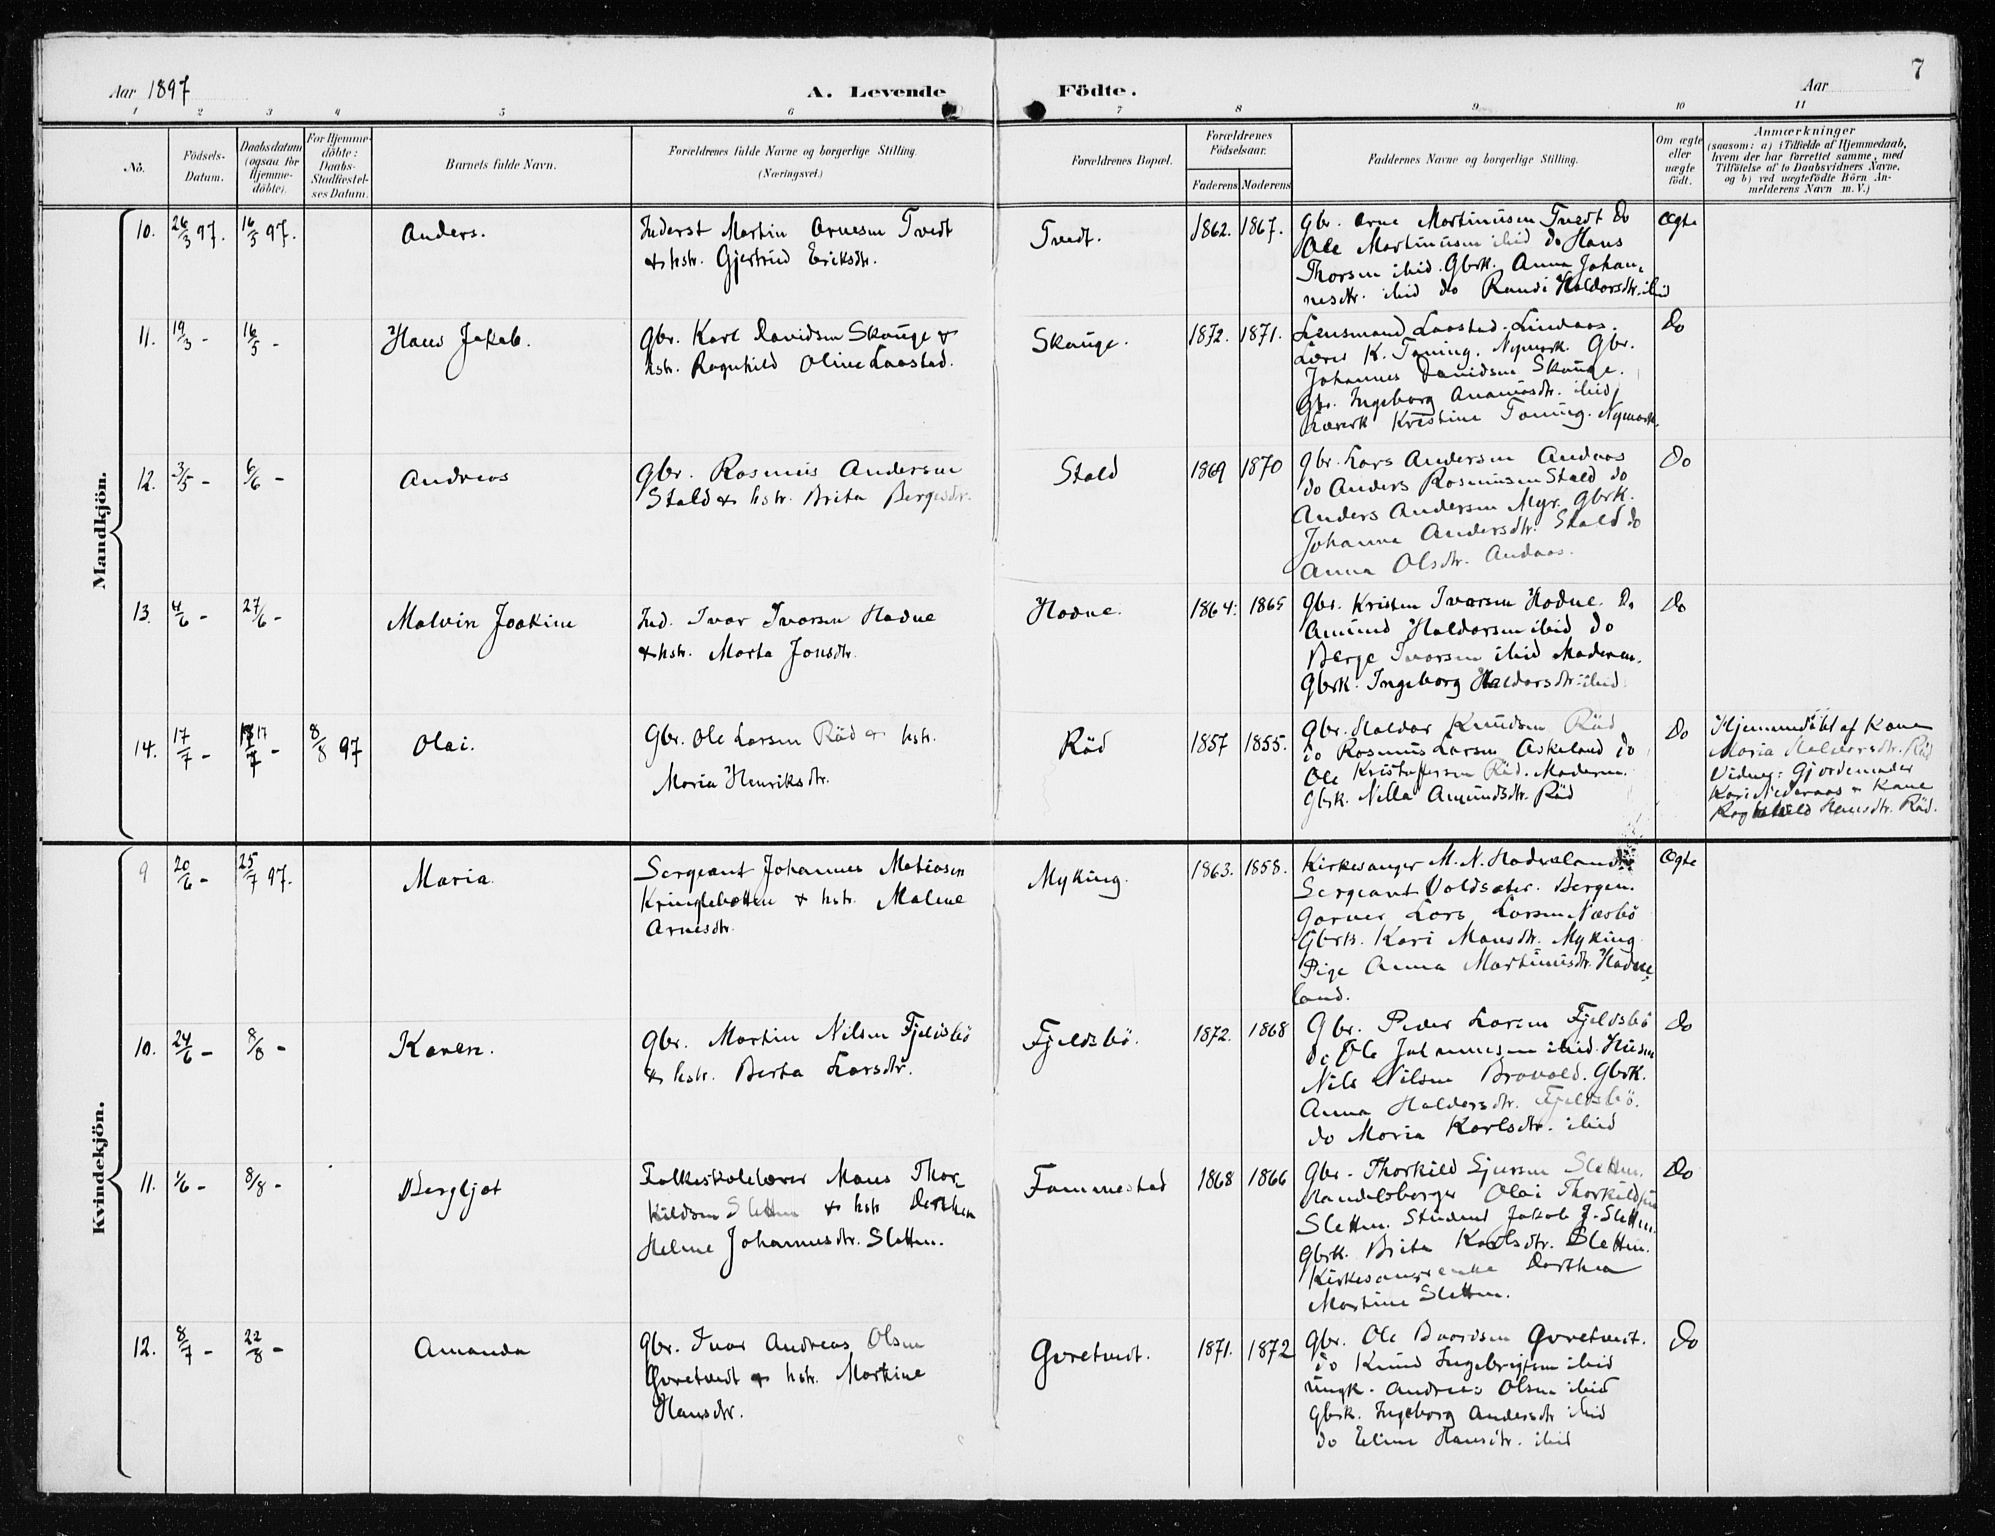 7
Aar 1897
A. Levende Födte.
Aar
1 2 3 4 5 6 7 8 9 10 11
No.
Födsels-
Datum.
Daabsdatum
(ogsaa for
Hjemme-
döbte).
For Hjemme-
döbte:
Daabs-
Stadfæstel-
ses Datum.
Barnets fulde Navn.
Forældrenes fulde Navne og borgerlige Stilling.
(Næringsvei.)
Forældrenes Bopæl.
Forældrenes
Födselsaar.
Faderens Moderens
Faddernes Navne og borgerlige Stilling.
Om ægte
eller
uægte
født.
Anmærkninger
(saasom: a) i Tilfælde af Hjemmedaab,
hvem der har forrettet samme, med
Tilföielse af to Daabsvidners Navne,
og b) ved uægtefödte Börn An-
melderens Navn m. V.)
Mandkjön.
10. 26/3 97. 16/5 97. Anders.
Inderst Martin Arnesen Tvedt
& hstr. Gjertrud Eriksdtr.
Tvedt. 1862. 1867.
Gbr. Arne Martinusen Tvedt do
Ole Martinusen ibid do Hans
Thorsen ibid. Gbrk. Anna Johan-
nesdtr. ibid do Randi Haldorsdtr. ibid
Ægte
11. 19/3 - 16/5 - Hans Jakob.
Gbr. Karl Davidsen Skauge &
hstr. Ragnhild Oline Laastad.
Skauge. 1872. 1871.
Lensmand Laastad. Lindaas.
Lærer K. Toning. Nymark. Gbr.
Johannes Davidsen Skauge.
Gbr. Ingeborg Ananiasdtr. ibid,
Lærerk Kristine Toning. Nymark.
Do
12. 3/5 - 6/6 - Andreas
Gbr. Rasmus Andersen
Stald & hstr. Brita Bergesdtr.
Stald 1869 1870
Gbr. Lars Andersen Andaas
do Anders Rasmusen Stald do
Anders Andersen Myr. Gbrk.
Johanna Andersdtr. Stald do
Anna Olsdtr. Andaas.
Do
13. 4/6 - 27/6 - Malvin Joakim
Ind. Ivar Ivarsen Hodne
& hstr. Marta Jonsdtr.
Hodne. 1864. 1865
Gbr. Kristen Ivarsen Hodne. Do
Amund Haldorsen ibid do
Berge Ivarsen ibid Moderen.
Gbrk. Ingeborg Haldorsdtr. ibid
Do
14. 17/7 - 17/7 - 8/8 97 Olai.
Gbr. Ole Larsen Röd & hstr.
Maria Henriksdtr.
Röd 1857 1855.
Gbr. Haldor Knudsen Röd
do Rasmus Larsen Askeland do
Ole Kristoffersen Röd. Moderen.
Gbrk. Nilla Amundsdtr. Röd
Do
Hjemmedöbt af Kone
Maria Röd
Vidner: Gjordemoder
Kari Nederaas & Kone
Ragnhild Hansdtr. Röd.
Kvindekjön.
9 20/6 - 25/7 97. Maria.
Sergeant Johannes Matiasen
Kringlebotten & hstr. Malene
Arnesdtr.
Myking. 1863. 1858.
Kirkesanger M. N. Hodneland
Sergeant Voldsæter. Bergen.
Garver Lars Larsen Næsbö
Gbrk. Kari Mansdtr. Myking
Pige Anna Martinusdtr. Hodne-
land.
Ægte
10. 24/6 - 8/8 - Karen.
Gbr. Martin Nilsen Fjeldsbö
& hstr. Berta Larsdtr.
Fjeldsbö. 1872. 1868
Gbr. Peder Larsen Fjeldsbö
do Ole Johannesen ibid.
Nils Nilsen Brovold. Gbrk.
Anna Haldorsdtr. Fjeldsbö.
do Maria Karlsdtr. ibid
Do
11. 1/6 - 8/8 - Bergljot
Folkeskolelærer Mons Thor-
kildsen Sletten & hstr Dorthea
Helene Johannesdtr. Sletten.
Fammestad 1868 1866
Gbr. Thorkild Sjursen Sletten.
Handelsborger Olai Thorkildsen
Sletten. Student Jakob J. Sletten.
Gbrk. Brita Karlsdtr. Sletten.
Kirkesangerenke Dorthea
Martine Sletten.
Do
12. 8/7 - 22/8 - Amanda
Gbr. Ivar Andreas Olsen
Qvretvedt & hstr. Martine
Hansdtr.
Qvretvedt. 1871. 1872
Gbr. Ole Baardsen Qvretvedt.
do Knud Ingebrigtsen ibid
Ungk. Andreas Olsen ibid
Gbrk. Ingeborg Andersdtr ibid
do Eline Hansdtr. ibid
Do